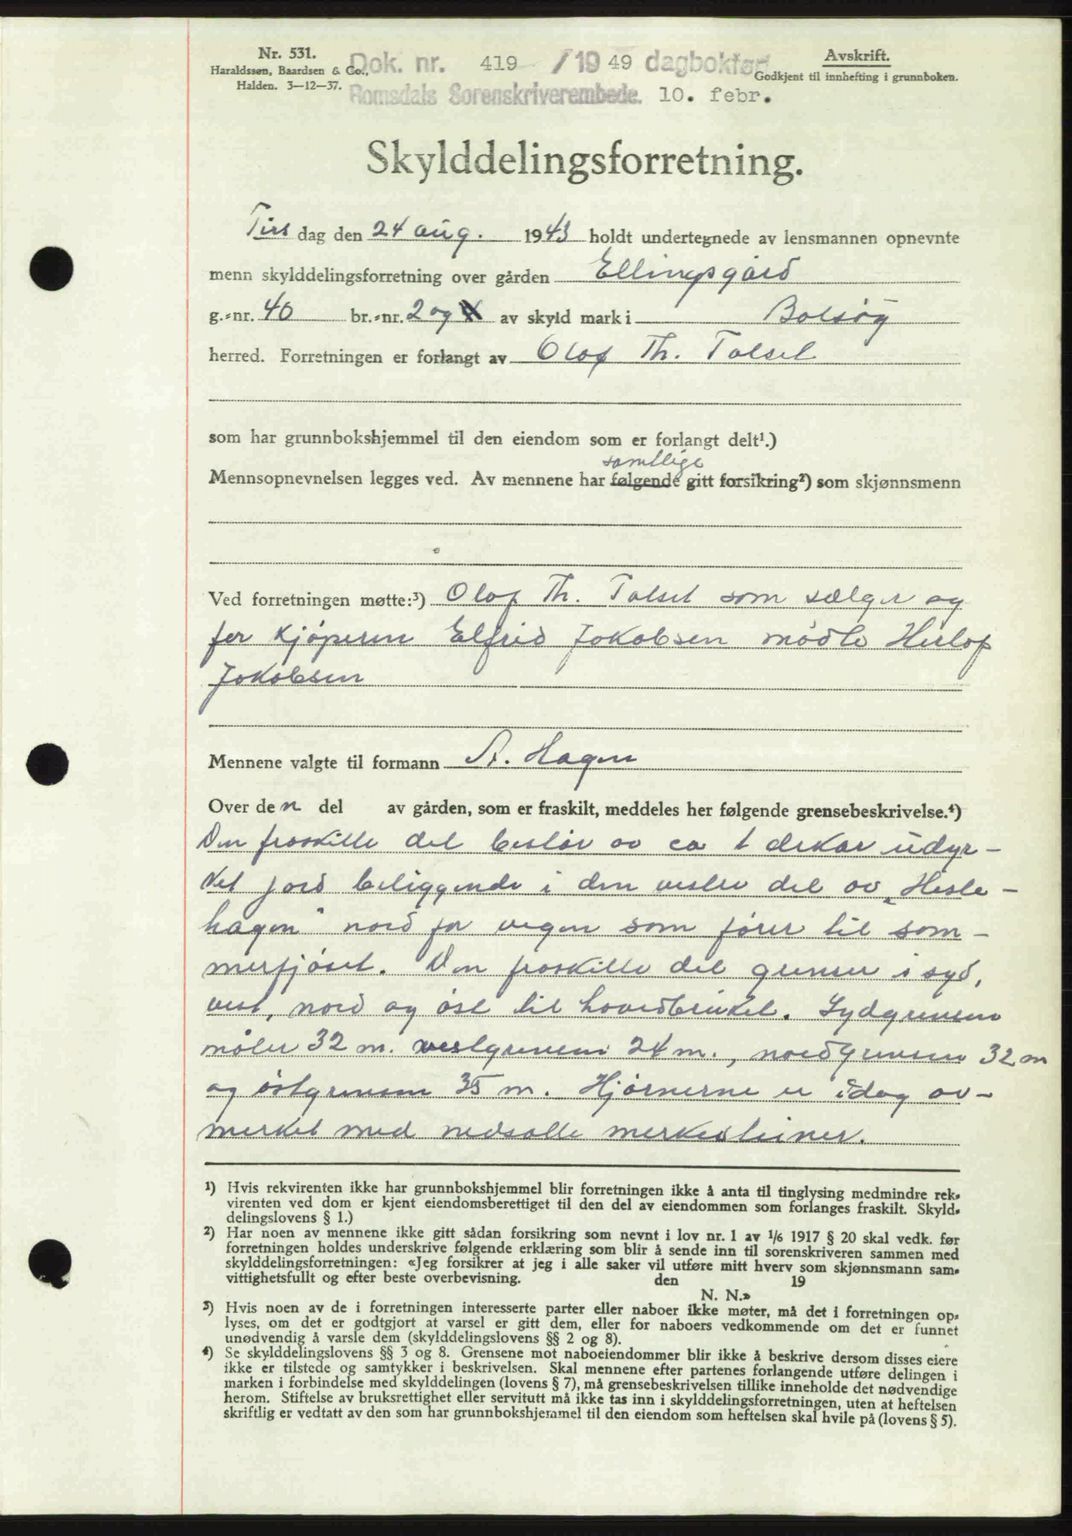 Nr. 531.
Haraldssøn, Baardsen & Co.,
Halden. 3—12—37.
Dok. nr. 419 /1949 dagbokført
Romsdals Sorenskriverembede. 10. febr.
Avskrift.
Godkjent til innhefting i grunnboken.
Skylddelingsforretning.
Tirsdag den 24 aug. 1943 holdt undertegnede av lensmannen opnevnte
menn skylddelingsforretning over gården Ellingsgård
g.-nr. 40 br.-nr. 2 og av skyld mark i Bolsøy
herred. Forretningen er forlangt av Olaf Th. Talset
som har grunnbokshjemmel til den eiendom som er forlangt delt¹.)
samtlige
Mennsopnevnelsen legges ved. Av mennene har følgende gitt forsikring²) som skjønnsmenn
Ved forretningen møtte:³) Olaf Th. Talset som sælger og
for kjøperen Elfrid Jakobsen møtte Herlof
Jakobsen
Mennene valgte til formann A. Hagen
Over den del av gården, som er fraskilt, meddeles her følgende grensebeskrivelse.⁴)
Den fraskilte del består av ca 1 dekar udyr-
ket jord beliggende i den vestre del av „Hesle-
hagen" nord for vegen som fører til som-
merfjøset. Den fraskilte del grenser i syd,
vest, nord og øst til hovedbruket. Sydgrensen
måler 32 m. vestgrensen 24 m., nordgrensen 32 m
og østgrensen 35 m. Hjørnerne er idag av-
merket med nedsatte merkesteiner.
¹) Hvis rekvirenten ikke har grunnbokshjemmel blir forretningen ikke å anta til tinglysing medmindre rek-
virenten ved dom er kjent eiendomsberettiget til den del av eiendommen som forlanges fraskilt. Skyld-
delingslovens § 1.)
²) Har noen av mennene ikke gitt sådan forsikring som nevnt i lov nr. 1 av 1/6 1917 § 20 skal vedk. før
forretningen holdes underskrive følgende erklæring som blir å sende inn til sorenskriveren sammen med
skylddelingsforretningen: «Jeg forsikrer at jeg i alle saker vil utføre mitt hverv som skjønnsmann sam-
vittighetsfullt og efter beste overbevisning. den 19
N. N.»
³) Hvis noen av de i forretningen interesserte parter eller naboer ikke møter, må det i forretningen op-
lyses, om det er godtgjort at varsel er gitt dem, eller for naboers vedkommende om det er funnet
unødvendig å varsle dem (skylddelingslovens §§ 2 og 8).
⁴) Se skylddelingslovens §§ 3 og 8. Grensene mot naboeiendommer blir ikke å beskrive dersom disses eiere
ikke er tilstede og samtykker i beskrivelsen. Skal mennene efter partenes forlangende utføre delingen i
marken i forbindelse med skylddelingen (lovens § 7), må grensebeskrivelsen tillike inneholde det nødvendige
herom. Stiftelse av bruksrettighet eller servitutt må ikke tas inn i skylddelingsforretningen, uten at heftelsen
skriftlig er vedtatt av den som har grunnbokshjemmel til den eiendom som heftelsen skal hvile på (lovens § 5).